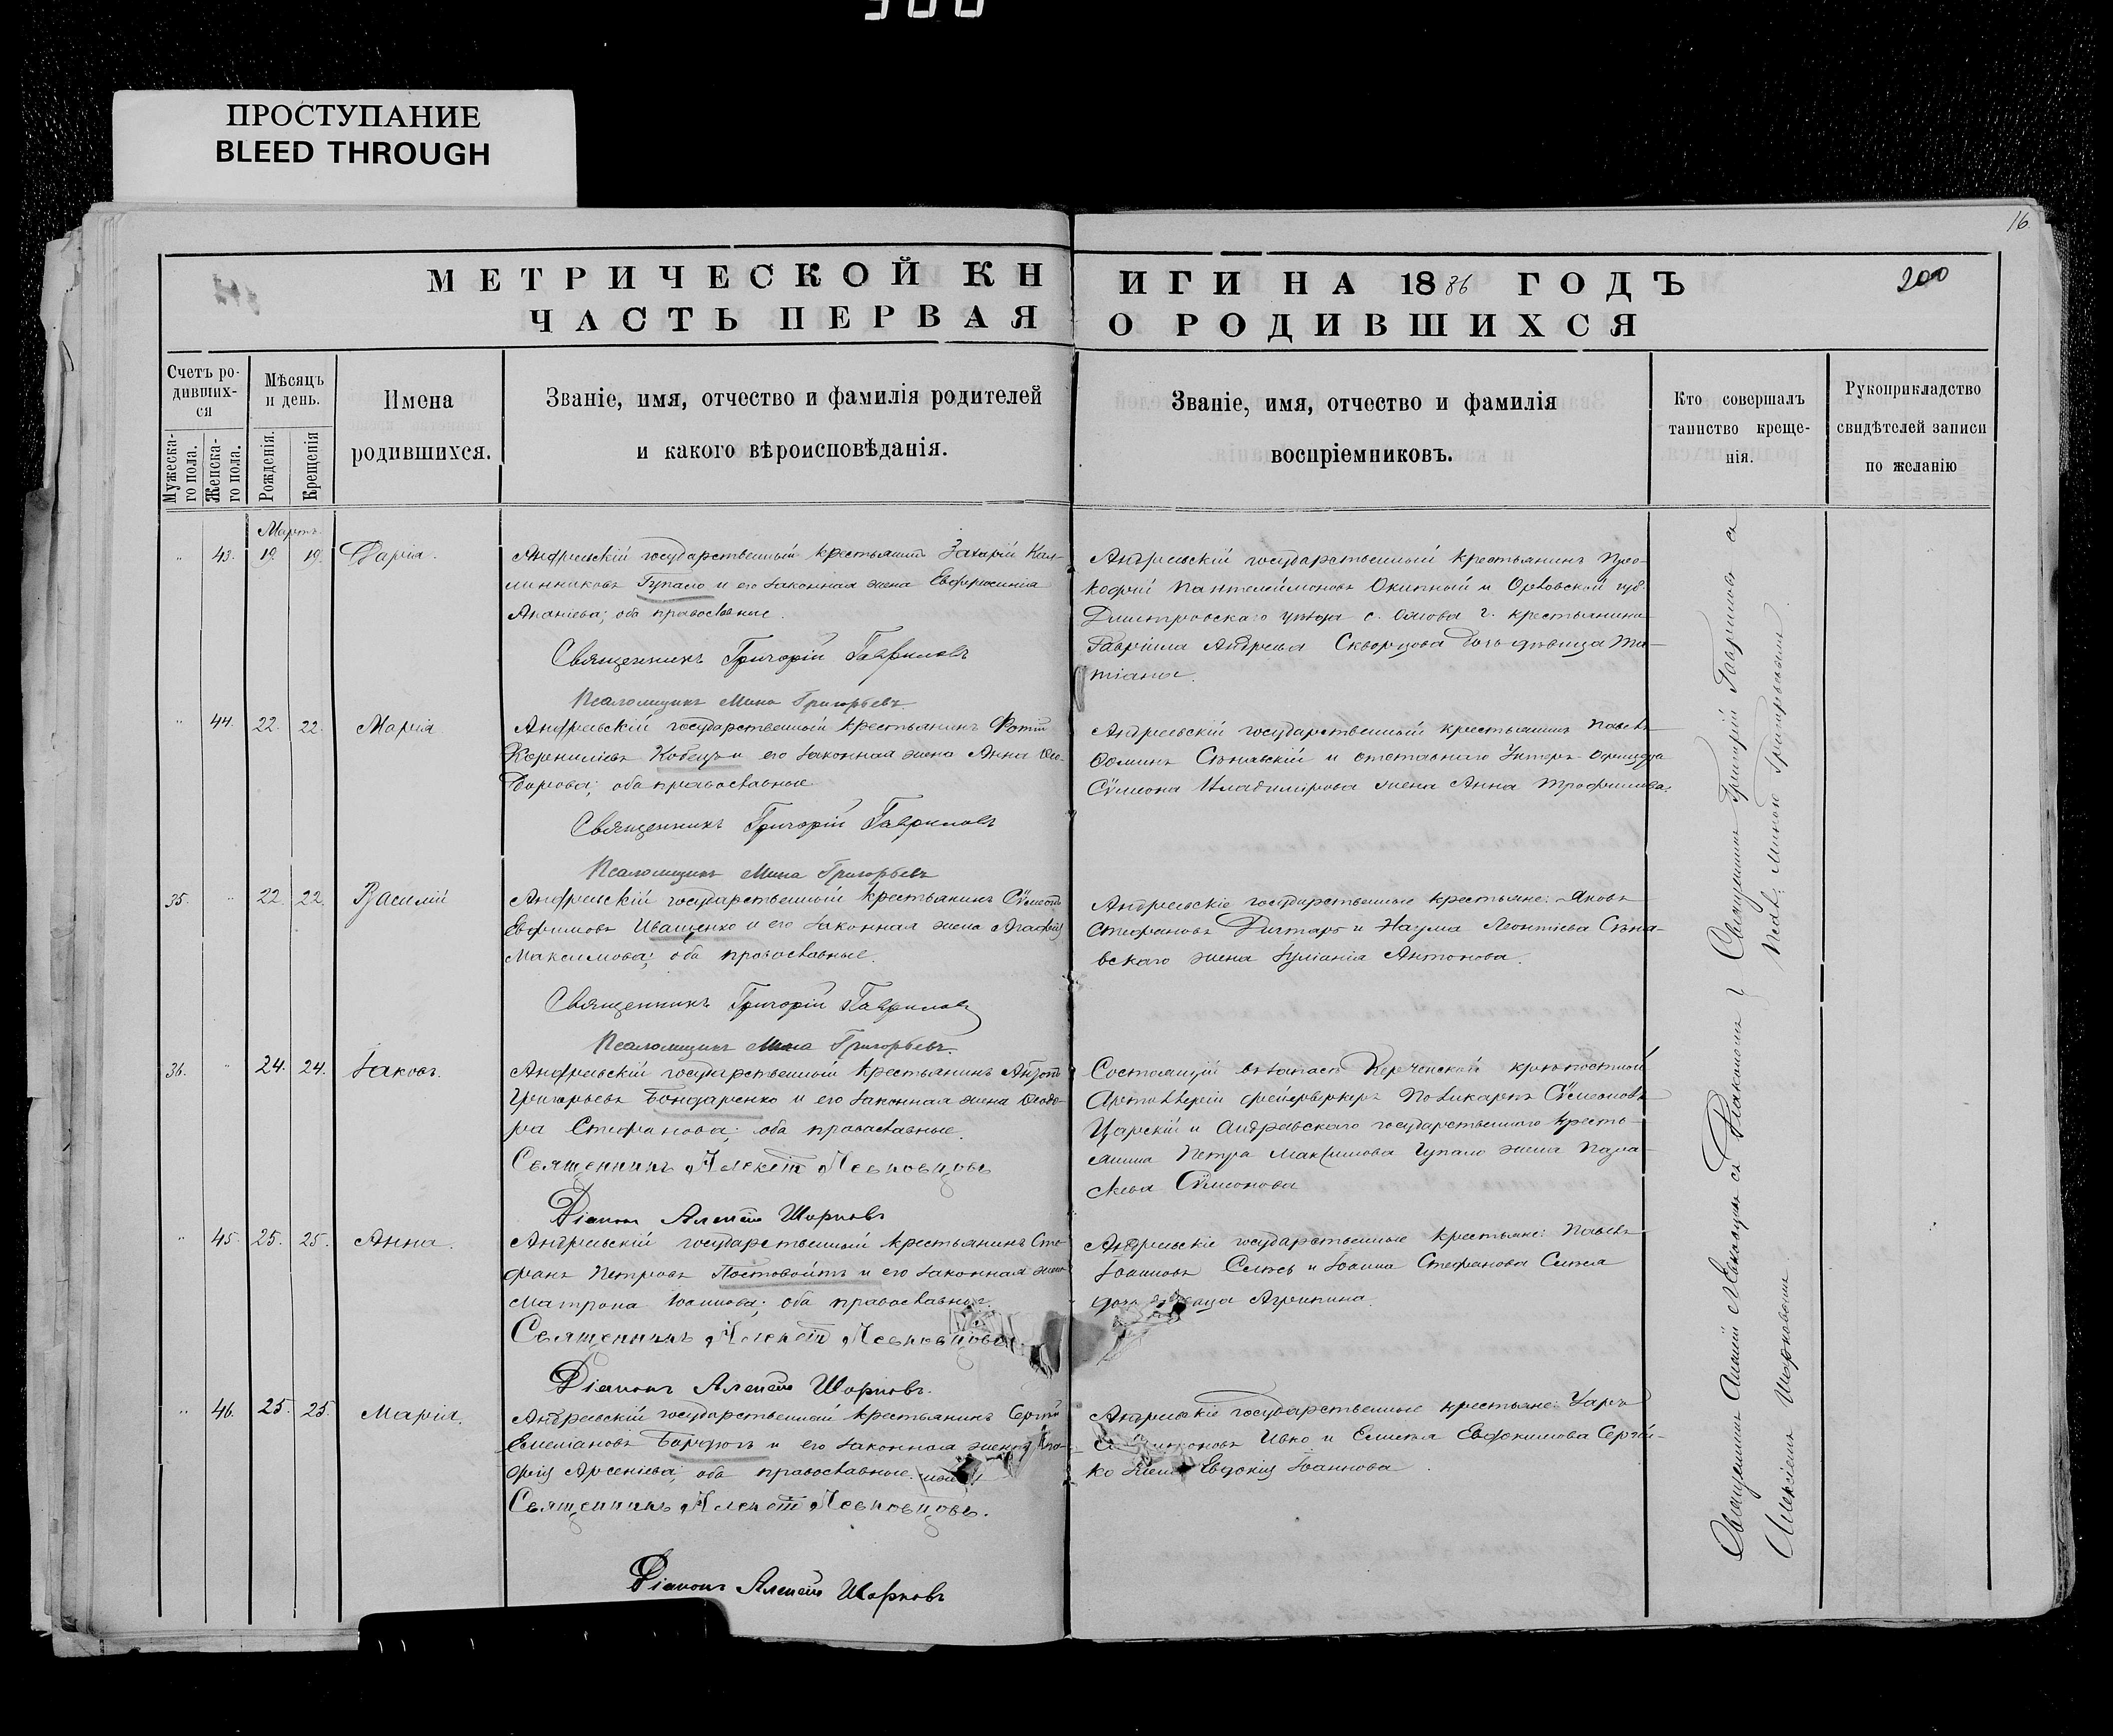 300
ПРОСТУПАНИЕ
BLEED THROUGH
16
МЕТРИЧЕСКОЙ КНИГИ НА 1886 ГОДЪ
200
ЧАСТЬ ПЕРВАЯ О РОДИВШИХСЯ
Счетъ родившихся
Мужескаго пола.
Женскаго пола.
Мѣсяцъ и день.
Рожденія.
Крещенія
Имена родившихся.
Званіе, имя, отчество и фамилія родителей
и какого вѣроисповѣданія.
Званіе, имя, отчество и фамилія
воспріемниковъ.
Кто совершалъ
таинство креще-
нія.
Рукоприкладство
свидѣтелей записи
по желанію
Мартъ
" 43. 19. 19. Дарія.
Андреевскій государственный крестьянинъ Захарій Кал-
линниковъ и его законная жена Евфросинія
Ананіева; оба православные.
Священникъ Григорій Гавриловъ
Псаломщикъ Мина Григорьевъ
Андреевскій государственный крестьянинъ Про-
кофій Пантелеймоновъ Окипный и Орловской губ.
Дмитровскаго уѣзда с. г. крестьянина
Гавріила Андреева Скворцова дочь дѣвица Та-
тіана.
" 44. 22. 22. Марія
Андреевскій государственный крестьянинъ Фотій
Корниліевъ Кобецъ и его законная жена Анна Ѳео-
дорова; оба православные
Священникъ Григорій Гавриловъ
Псаломщикъ Мина Григорьевъ
Андреевскій государственный крестьянинъ Павелъ
Ѳоминъ Сѣнявскій и отставнаго Унтеръ-офицера
Сѵмеона Владимірова жена Анна Трофимова.
35. " 22. 22. Василій
Андреевскій государственный крестьянинъ Сѵмеонъ
Евфимовъ Иващенко и его законная жена Агафія
Максимова; оба православные.
Священникъ Григорій Гавриловъ
Псаломщикъ Мина Григорьевъ.
Андреевскіе государственные крестьяне: Яковъ
Стефановъ Дихтарь и Наума Леонтіева Сѣня-
вскаго жена Іуліанія Антонова.
36. " 24. 24. Іаковъ.
Андреевскій государственный крестьянинъ Антонъ
Григорьевъ Бондаренко и его законная жена Ѳеодо-
ра Стефанова; оба православные.
Священникъ Алексій Левковцовъ
Діаконъ Алексій Шорковъ
Состоящій въ запасѣ Керченской крѣпостной
Артиллеріи фейерверкеръ Поликарпъ Сѵмеоновъ
Царскій и Андреевскаго государственнаго кресть-
янина Петра Максимова Чупало жена Пара-
скева Сѵмеонова
" 45. 25. 25. Анна.
Андреевскій государственный крестьянинъ Сте-
фанъ Петровъ Постовойтъ и его законная жена
Матрона Іоаннова; оба православные.
Священникъ Алексій Левковцовъ.
Діаконъ Алексій Шорковъ.
Андреевскіе государственные крестьяне: Павелъ
Іоанновъ и Іоанна Стефанова
дочь дѣвица Агрипина.
" 46. 25. 25. Марія.
Андреевскій государственный крестьянинъ Сергій
Емеліановъ и его законная жена
Арсеніева; оба православные.
Священникъ Алексій Левковцовъ.
Діаконъ Алексій Шорковъ
Андреевскіе государственные крестьяне:
Ивко и Евфимова Сергій-
ко жена Евдокія Іоаннова.
Священникъ Григорій Гавриловъ съ
Псал: Миною Григорьевымъ.
Священникъ Алексій Левковцовъ съ Діакономъ
Алексіемъ Шорковымъ.